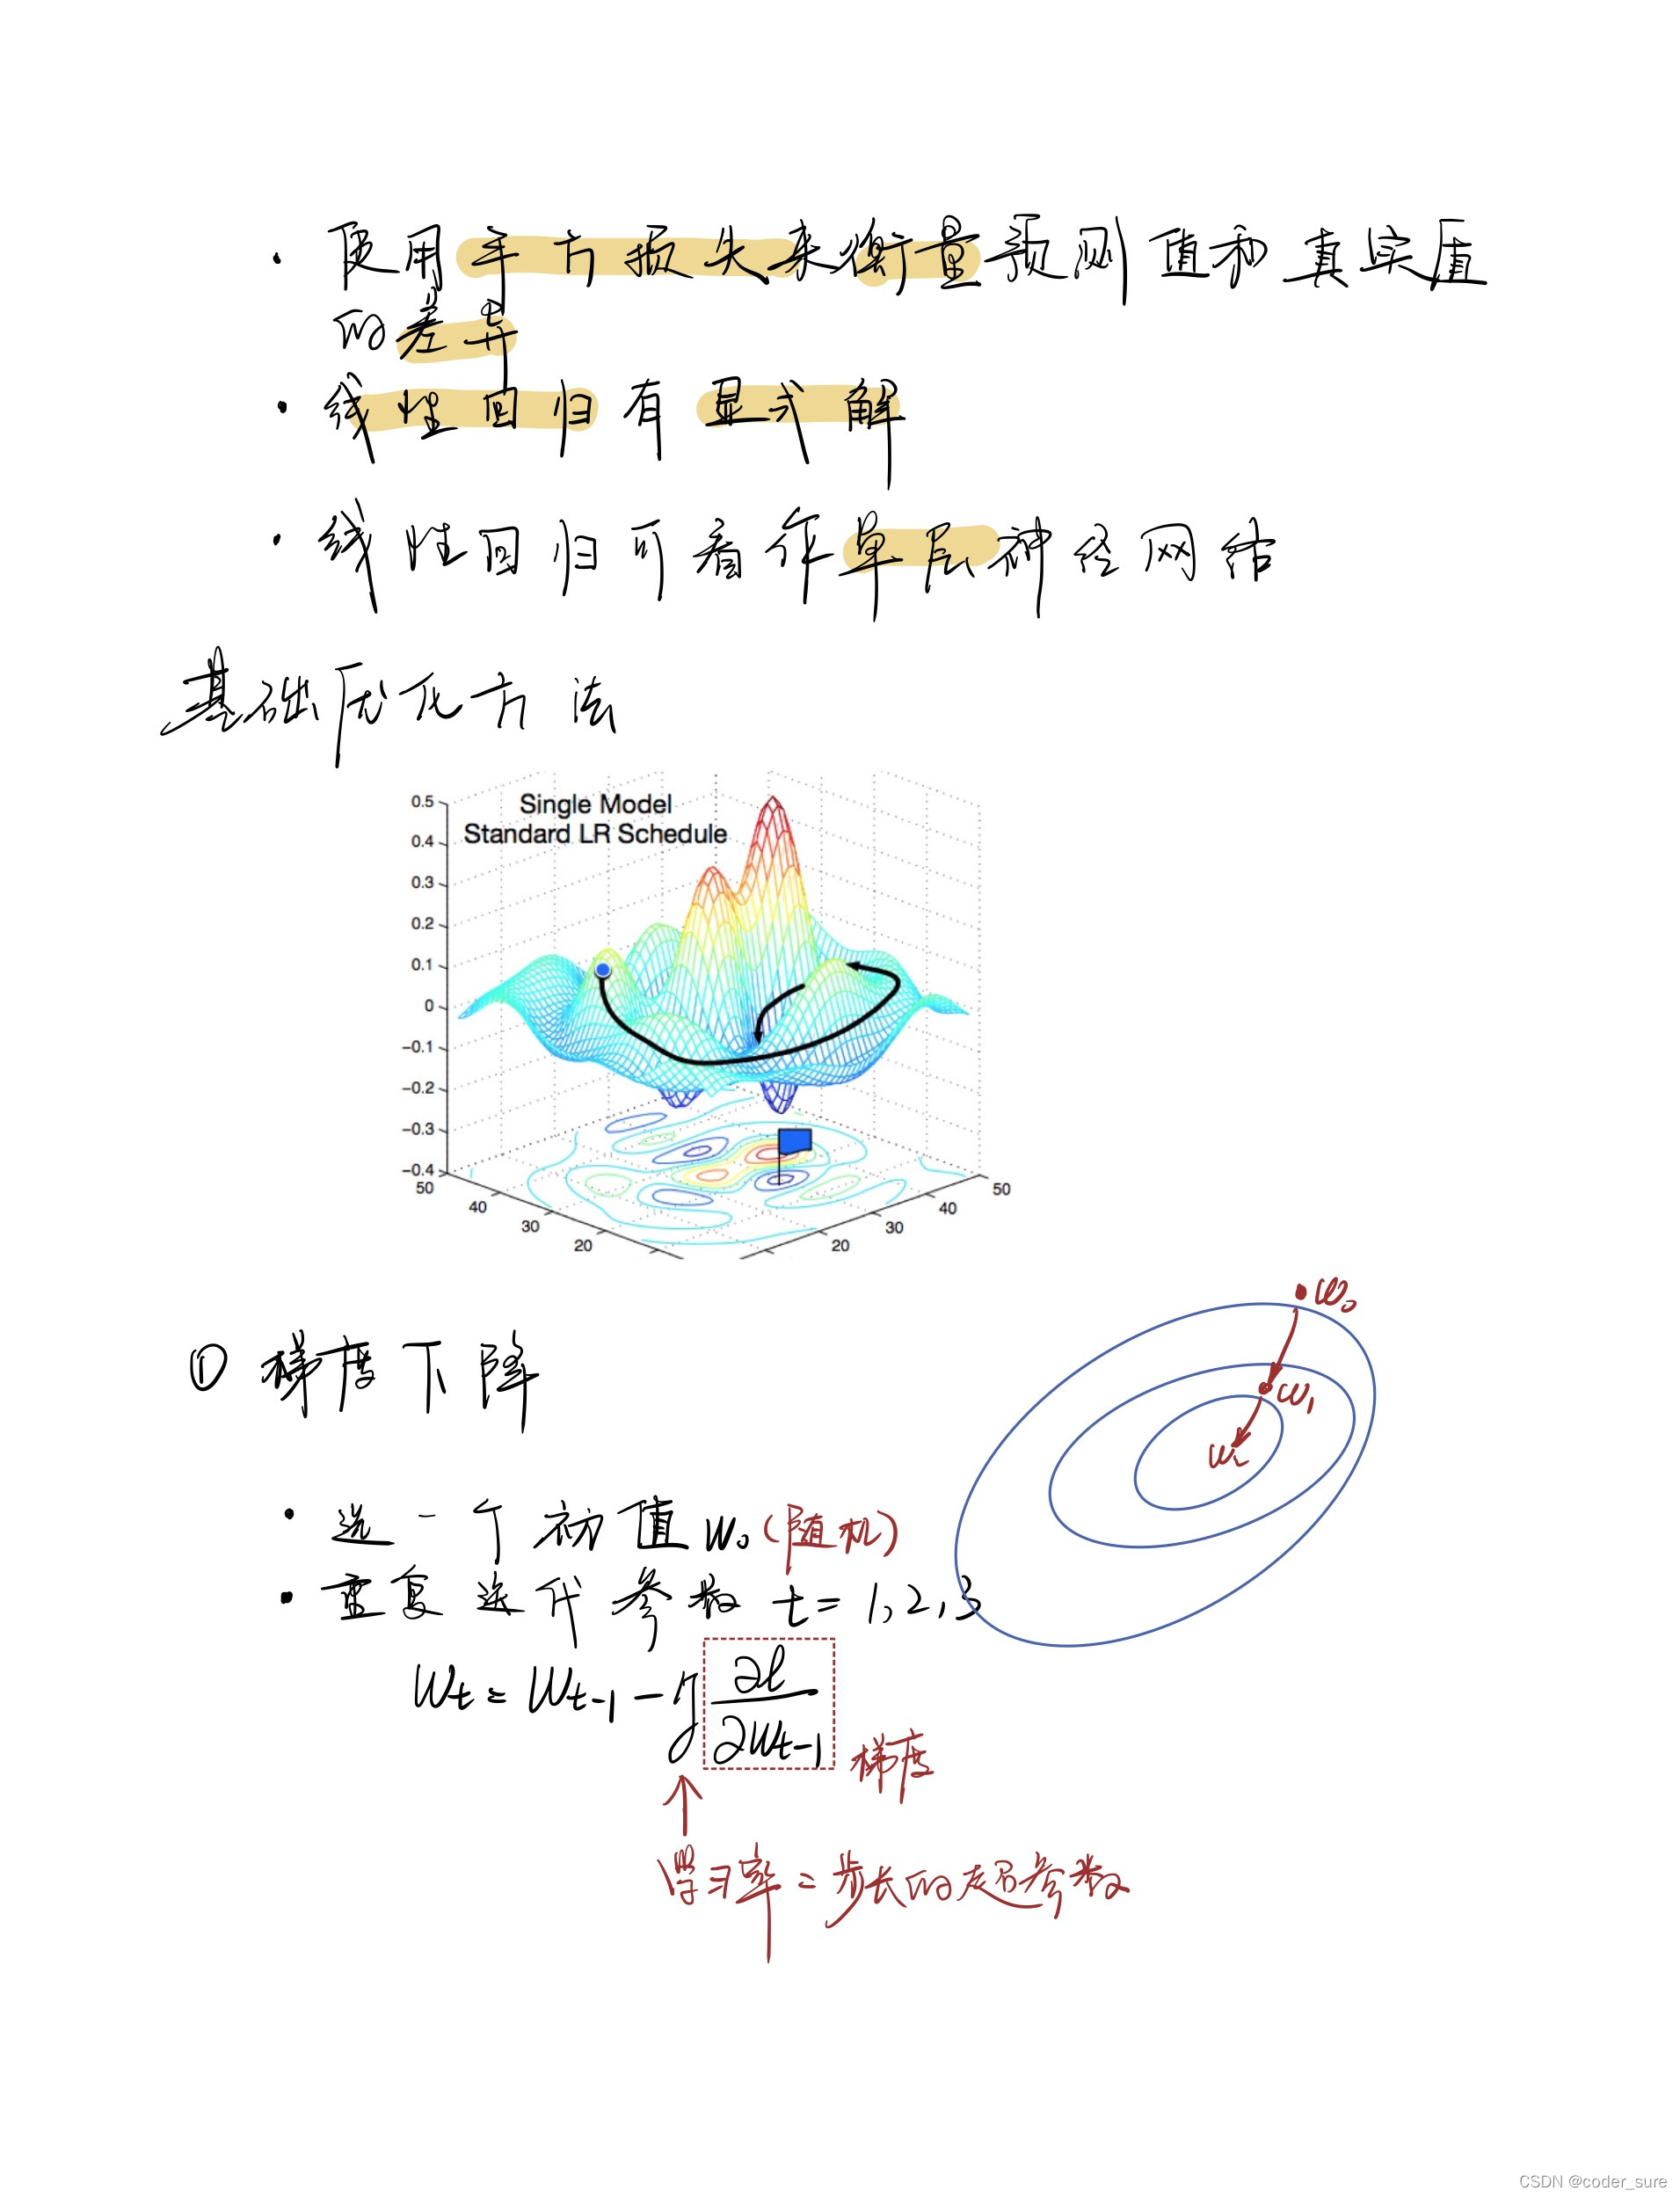 · 使用平方损失来衡量预测值和真实值
的差异
· 线性回归有显式解
· 线性回归可看作单层神经网络
基础优化方法
Single Model
Standard LR Schedule
0.5
0.4
0.3
0.2
0.1
0
−0.1
−0.2
−0.3
−0.4
50
40
30
20
20
30
40
50
① 梯度下降
w₀
w₁
w₂
· 选一个初值 w₀ (随机)
· 重复迭代参数 t = 1, 2, 3
wₜ = wₜ₋₁ − η ∂ℓ/∂wₜ₋₁
梯度
学习率 = 步长的超参数
CSDN @coder_sure